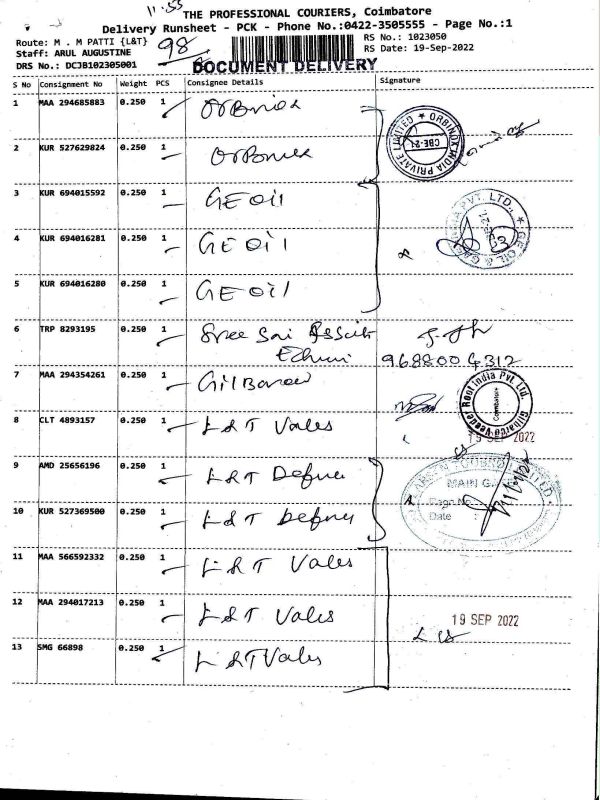 11.55
THE PROFESSIONAL COURIERS, Coimbatore
Delivery Runsheet - PCK - Phone No.:0422-3505555 - Page No.:1
Route: M . M PATTI {L&T} 98 RS No.: 1023050
Staff: ARUL AUGUSTINE RS Date: 19-Sep-2022
DRS No.: DCJB102305001 DOCUMENT DELIVERY
S No Consignment No Weight PCS Consignee Details Signature
1 MAA 294685883 0.250 1 Orbinox
ORBINOX INDIA PRIVATE LIMITED ★ CBE-21
2 KUR 527629824 0.250 1 Orbinox
3 KUR 694015592 0.250 1 GE Oil
GE OIL & GAS INDIA PVT. LTD., ★
4 KUR 694016281 0.250 1 GE Oil
5 KUR 694016280 0.250 1 GE Oil
6 TRP 8293195 0.250 1 Sree Sai
9688004312
7 MAA 294354261 0.250 1 Gilbarco
Gilbarco Veeder Root India Pvt. Ltd. Coimbatore
8 CLT 4893157 0.250 1 L&T Vales
19 SEP 2022
9 AMD 25656196 0.250 1 L&T Defnce
LARSEN & TOUBRO LIMITED MAIN GATE
10 KUR 527369500 0.250 1 L&T Defnce
Date
11 MAA 566592332 0.250 1 L&T Vales
12 MAA 294017213 0.250 1 L&T Vales
19 SEP 2022
13 SMG 66898 0.250 1 L&T Vales